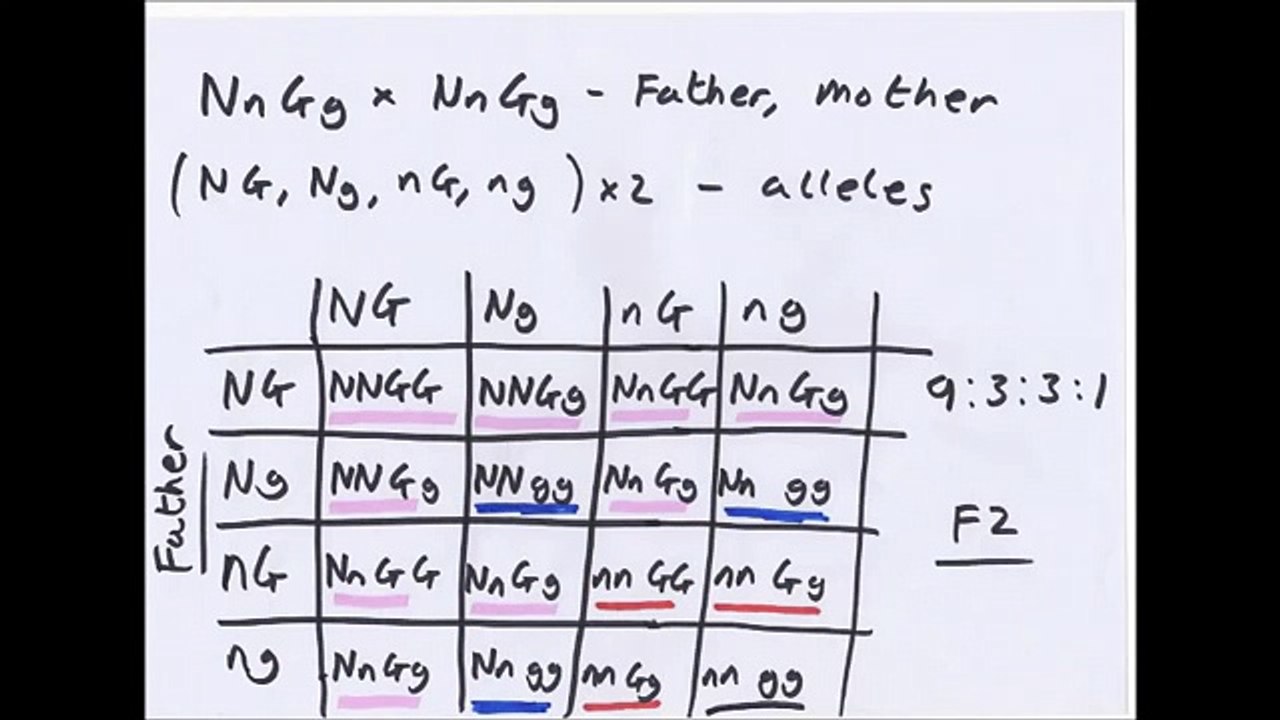 NnGg × NnGg - Father, mother
(NG, Ng, nG, ng) ×2 - alleles
NG Ng nG ng
NG NNGG NNGg NnGG NnGg 9:3:3:1
Father
Ng NNGg NNgg NnGg Nn gg
F2
nG NnGG NnGg nn GG nn Gg
ng NnGg Nn gg nn Gg nn gg